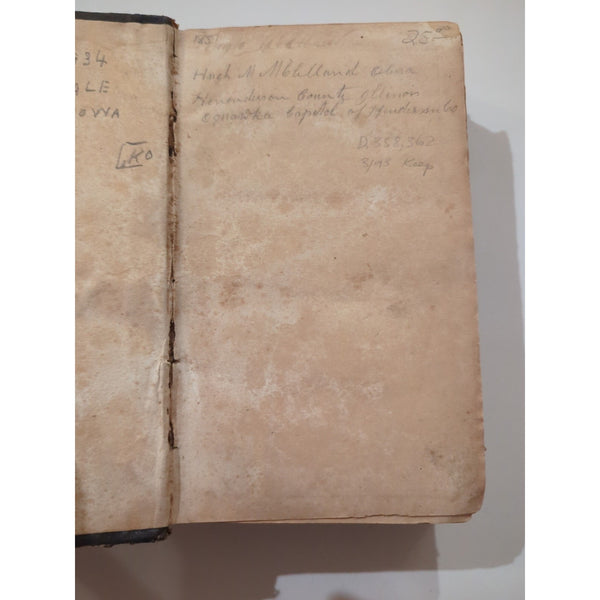 34
ALE
OWA
.KO
1851
25.00
Hugh M McClelland Olena
Hennderson County Illinois
Oquawka Capitol of Henderson Co
D,358,362
3/145 Keep